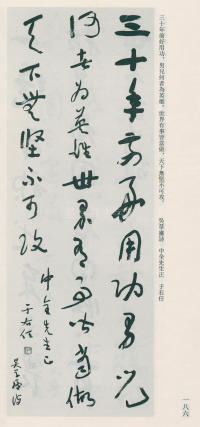 三十年前好用功，男兒何者為英雄。世界有事皆當做，天下無堅不可攻。　吳草廬詩　中全先生正　于右任
三十年前好用功男兒
何者為英雄世界有事皆當做
天下無堅不可攻
中全先生正
于右任
吳草廬詩
一八六